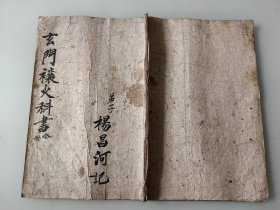 玄門禳火科書
弟子
楊昌河記